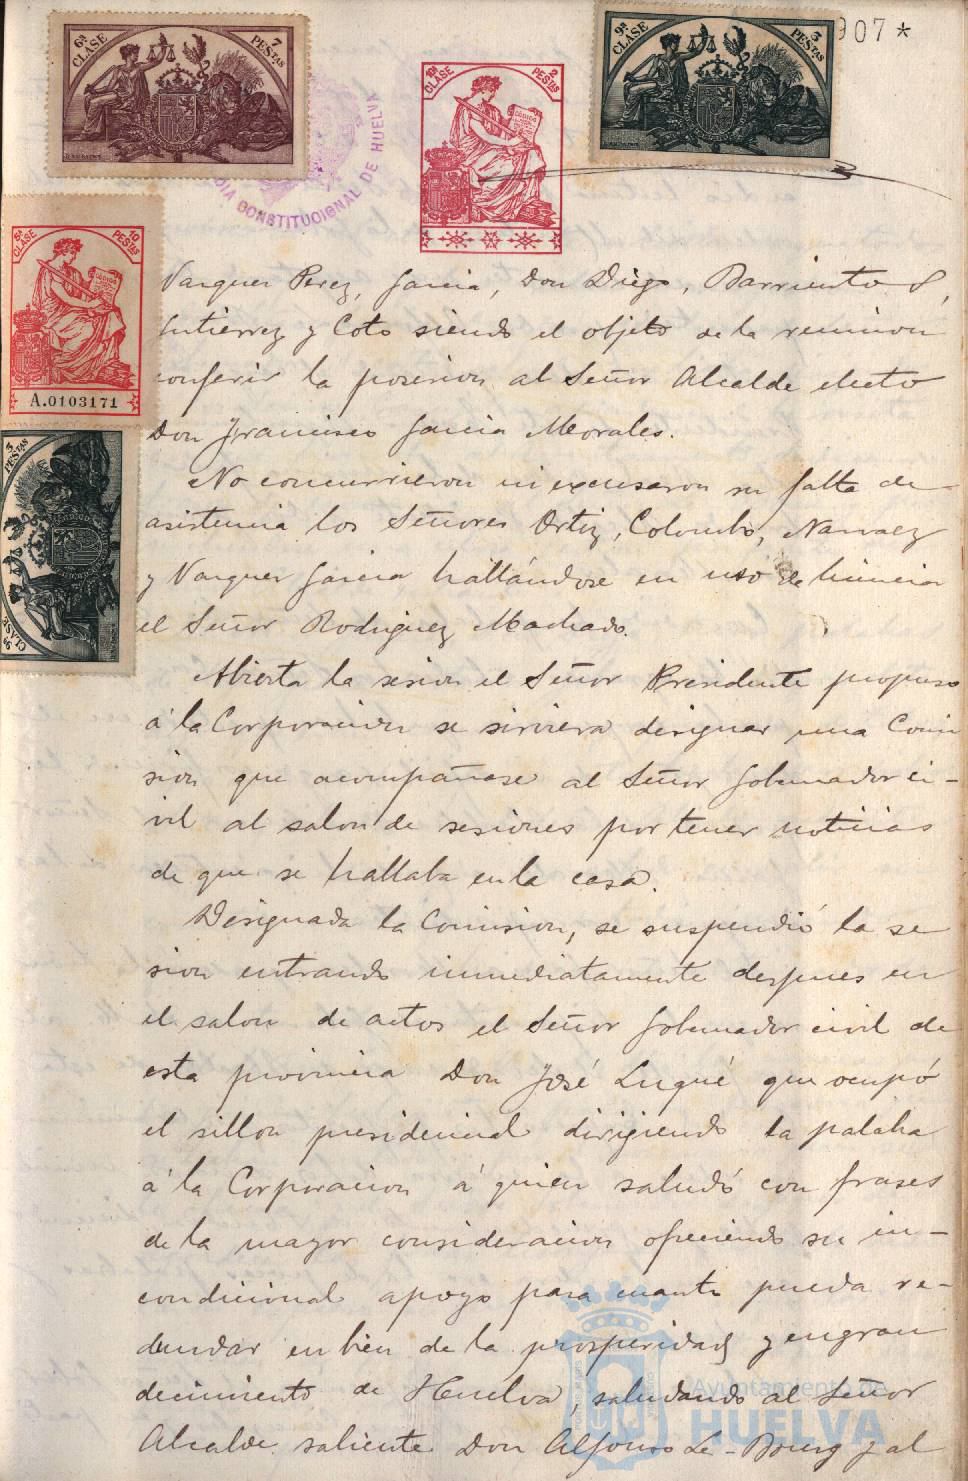 6ª CLASE 7 PESTAS
10ª CLASE 2 PESTAS
9ª CLASE 3 PESTAS
907*
DIA CONSTITUCIONAL DE HUELVA
5ª CLASE 10 PESTAS
A.0103171
9ª CLASE 3 PESTAS
Vazquez Perez, Garcia, Don Diego, Barriento S,
Gutierrez y Coto siendo el objeto de la reunion
conferir la posesion al Señor Alcalde electo
Don Francisco Garcia Morales.
No concurrieron ni excusaron su falta de
asistencia los Señores Ortiz, Colombo, Narvaez
y Vazquez Garcia hallándose en uso de licencia
el Señor Rodriguez Machado.
Abierta la sesion el Señor Presidente propuso
á la Corporacion se sirviera designar una Comi
sion que acompañase al Señor Gobernador ci-
vil al salon de sesiones por tener noticias
de que se hallaba en la casa.
Designada la Comision, se suspendió la se
sion entrando inmediatamente despues en
el salon de actos el Señor Gobernador civil de
esta provincia Don José Luqué que ocupó
el sillon presidencial dirigiendo la palaba
á la Corporacion á quien saludó con frases
de la mayor consideracion ofreciendo su in-
condicional apoyo para cuanto pueda re-
dundar en bien de la prosperidad y engran
decimiento de Huelva, saludando al Señor
Alcalde saliente Don Alfonso Le-Bourg y al
Ayuntamiento de
HUELVA